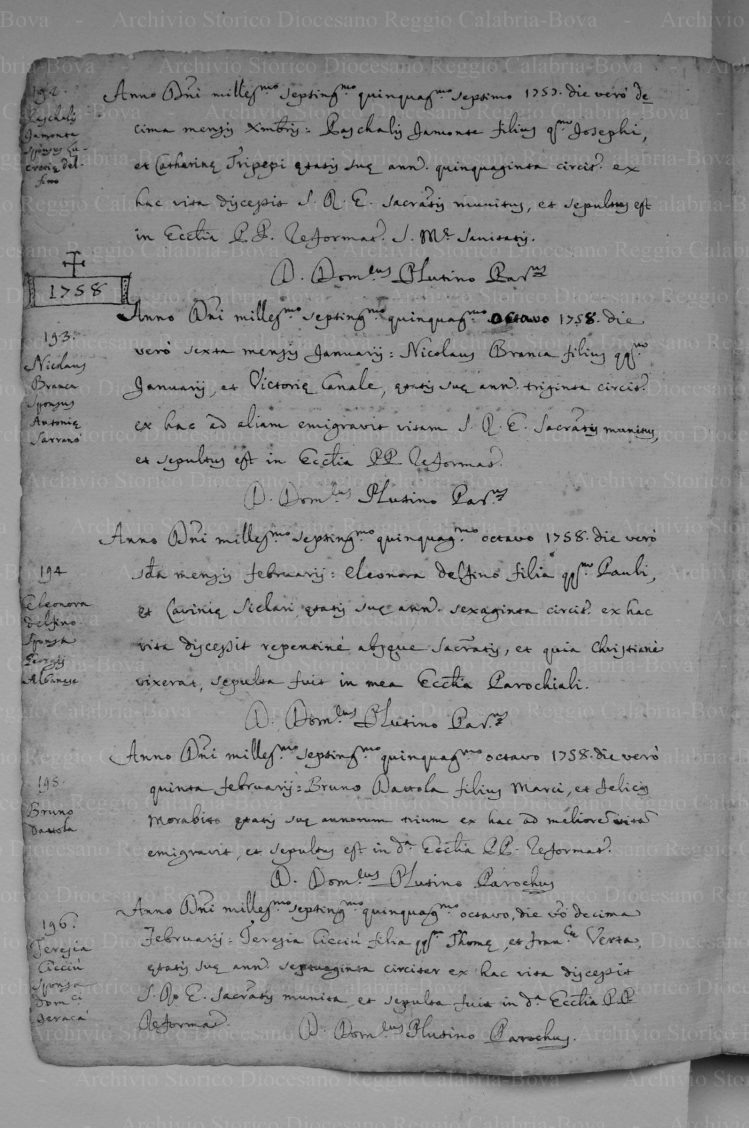 192.
Paschalis
Jamonte
sponsus Lu-
cretie del-
fino
Anno Dñi milles.mo septing.mo quinquag.mo septimo 1757. die verò de
cima mensis Xmbris: Paschalis Jamonte filius q.m Josephi,
et Catharinę Tripepi ętatis suę ann. quinquaginta circit. ex
hac vita discessit S. R. E. Sacratis munitus, et sepultus est
in Ecclia P.P. Reformat. S. Mę Sanitatis.
D. Dom.cus Plutino Par.us
1758
193.
Nicolaus
Branca
sponsus
Antonię
Sarranò
Anno Dñi milles.mo septing.mo quinquag.mo octavo 1758. die
verò sexta mensis Januarij: Nicolaus Branca filius qq.m
Januarij, et Victorię Canale, ętatis suę ann. triginta circit.
ex hac ad aliam emigravit vitam S. R. E. Sacratis munitus,
et sepultus est in Ecclia P.P. Reformat.
D. Dom.cus Plutino Par.us
194
Eleonora
Delfino
sponsa
Albanese
Anno Dñi milles.mo septing.mo quinquag.mo octavo 1758. die verò
sda mensis februarij: Eleonora delfino filia qq.m Pauli,
et Lavinię Siclari ętatis suę ann. sexaginta circit. ex hac
vita discessit repentinè absque Sacratis, et quia Christianè
vixerat, sepulta fuit in mea Ecclia Parochiali.
D. Dom.cus Plutino Par.us
195.
Bruno
Dattola
Anno Dñi milles.mo septing.mo quinquag.mo octavo 1758. die verò
quinta februarij: Bruno Dattola filius Marci, et Felicis
Morabito ętatis suę annorum trium ex hac ad meliorē vitā
emigravit, et sepultus est in d.a Ecclia P.P. Reformat.
D. Dom.cus Plutino Parochus
196.
Teresia
Cicciù
sponsa
Dom.ci
Jeracà
Anno Dñi milles.mo septing.mo quinquag.mo octavo, die vò decima
Februarij: Teresia Cicciù filia qq.m Thomę, et Fran.cę Verta,
ętatis suę ann. septuaginta circiter ex hac vita discessit
S. R. E. Sacratis munita, et sepulta fuit in d.a Ecclia P.P.
Reformat.
D. Dom.cus Plutino Parochus.
Archivio Storico Diocesano Reggio Calabria-Bova